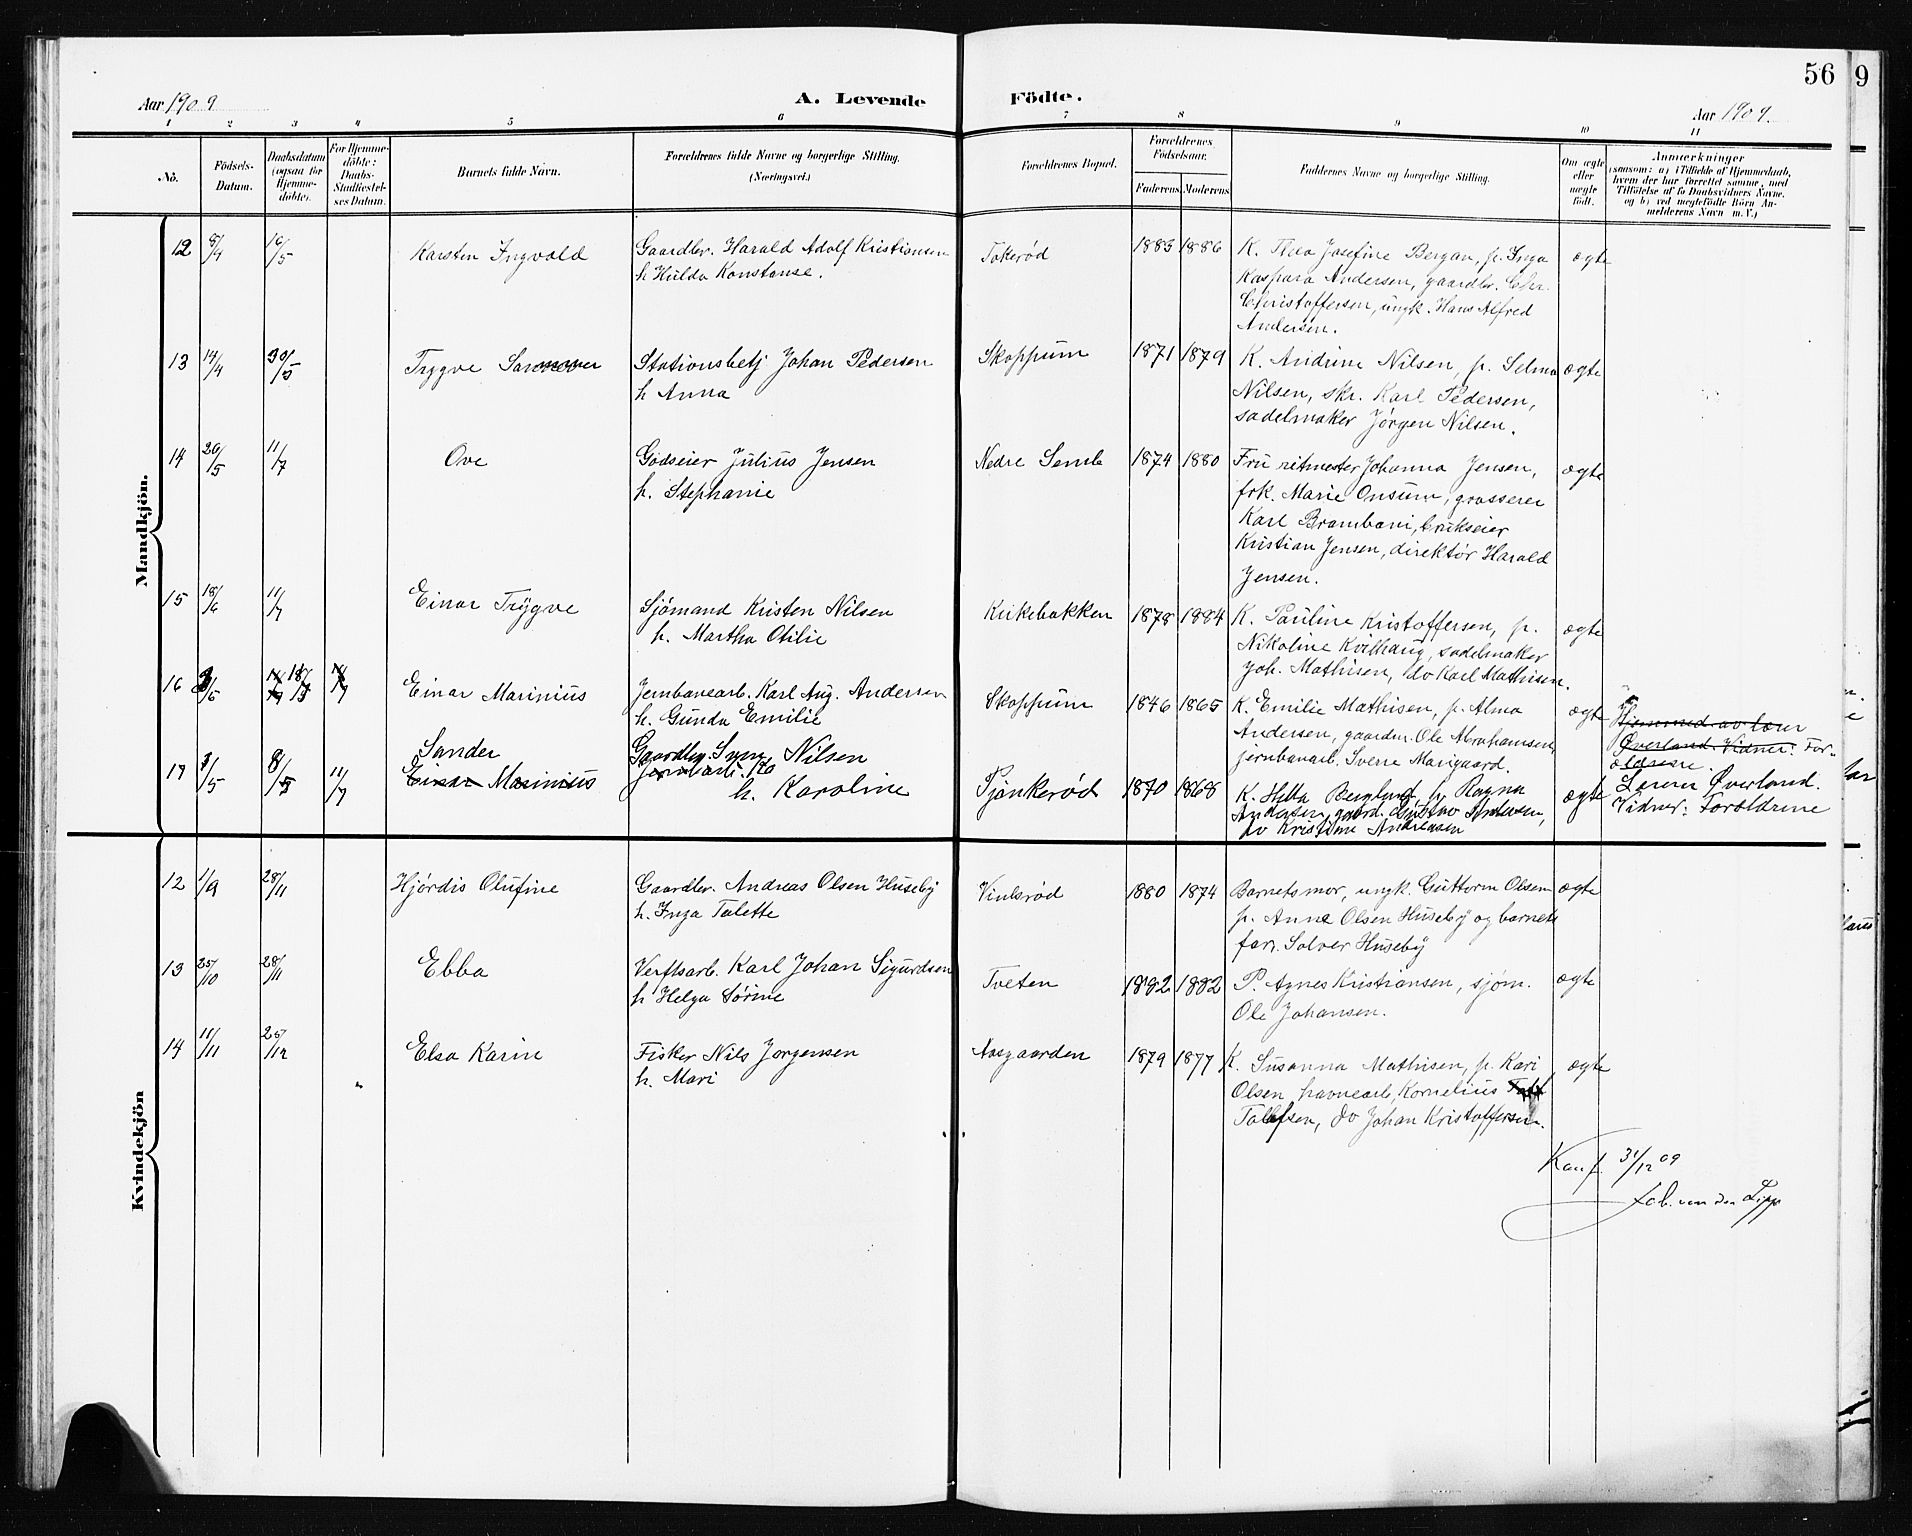 56
9
Aar 1909
A. Levende Födte.
Aar 1909.
1 2 3 4 5 6 7 8 9 10 11
No.
Födsels-
Datum.
Daabsdatum
(ogsaa for
Hjemme-
döbte).
For Hjemme-
döbte:
Daabs-
Stadfæstel-
ses Datum.
Barnets fulde Navn.
Forældrenes fulde Navne og borgerlige Stilling.
(Næringsvei.)
Forældrenes Bopæl.
Forældrenes
Födselsaar.
Faderens Moderens
Faddernes Navne og borgerlige Stilling.
Om ægte
eller
uægte
födt.
Anmærkninger
(saasom: a) i Tilfælde af Hjemmedaab,
hvem der har forrettet samme, med
Tilföielse af to Daabsvidners Navne,
og b) ved uægtefödte Börn An-
melderens Navn m. V.)
Mandkjön.
12 5/4 16/5 Karsten Ingvald
Gaardbr. Harald Adolf Kristiansen
h Hulda Konstanse.
Tokerød 1883 1886
K. Thea Josefine Bergan, p. Inga
Kaspara Andersen, gaardbr. Chr.
Christoffersen, ungk. Hans Alfred
Andersen.
ægte
13 14/4 30/5 Trygve
Stationsbetj Johan Pedersen
h Anna
Skoppum 1871 1879
K. Andrine Nilsen, p. Selma
Nilsen, skr. Karl Pedersen,
sadelmaker Jørgen Nilsen.
ægte
14 20/5 11/7 Ove
Godseier Julius Jensen
h. Stephanie
Nedre Semb 1874 1880
Fru ritmester Johanna Jensen,
frk. Marie Onsum, grosserer
Karl Brambani, brukseier
Kristian Jensen, direktør Harald
Jensen.
ægte
15 18/6 11/7 Einar Trygve
Sjømand Kristen Nilsen
h. Martha Otilie
Kirkebakken 1878 1884
K. Pauline Kristoffersen, p.
Nikoline Kvilhaug, sadelmaker
Joh. Mathisen, do Karl Mathisen.
ægte
16 Einar Marinius
Jernbanearb. Karl Aug. Andersen
h. Gunda Emilie
Skoppum 1846 1865
K. Emilie Mathisen, p. Alma
Andersen, gaardbr. Ole Abrahamsen,
jernbanearb. Sverre Marigaard.
ægte
Hjemmed av lærer
Øverland. Vidner: For-
ældrene.
17 3/5 8/5 11/7
Sander
Einar Marinius
Gaardbr. Nilsen
h. Karoline
Pjønkerød 1870 1868
K. Hilda Berglund, p. Ragna
Andersen, gaardb. Gustav Andersen,
do Kristine Andreasen
ægte
Lærer Øverland.
Vidner: Forældrene
Kvindekjön
12 1/9 28/11 Hjørdis Olufine
Gaardbr. Andreas Olsen Huseby
h. Inga Talette
Vinlsrød 1880 1874
Barnets mor, ungk. Guttorm Olsen
p. Anna Olsen Huseby og barnets
far. Solver Huseby
ægte
13 25/10 28/11 Ebba
Verftsarb. Karl Johan Sigurdsen
h Helga Sørine
Tveten 1882 1882
P. Agnes Kristiansen, sjøm.
Ole Johansen.
ægte
14 11/11 25/12 Elsa Karin
Fisker Nils Jørgensen
h. Mari
Aasgaarden 1879 1877
K. Susanna Mathisen, p. Kari
Olsen, havnearb. Kornelius
Tolefsen, do Johan Kristoffersen.
ægte
Konf. 31/12 09
Job. von der Lippe